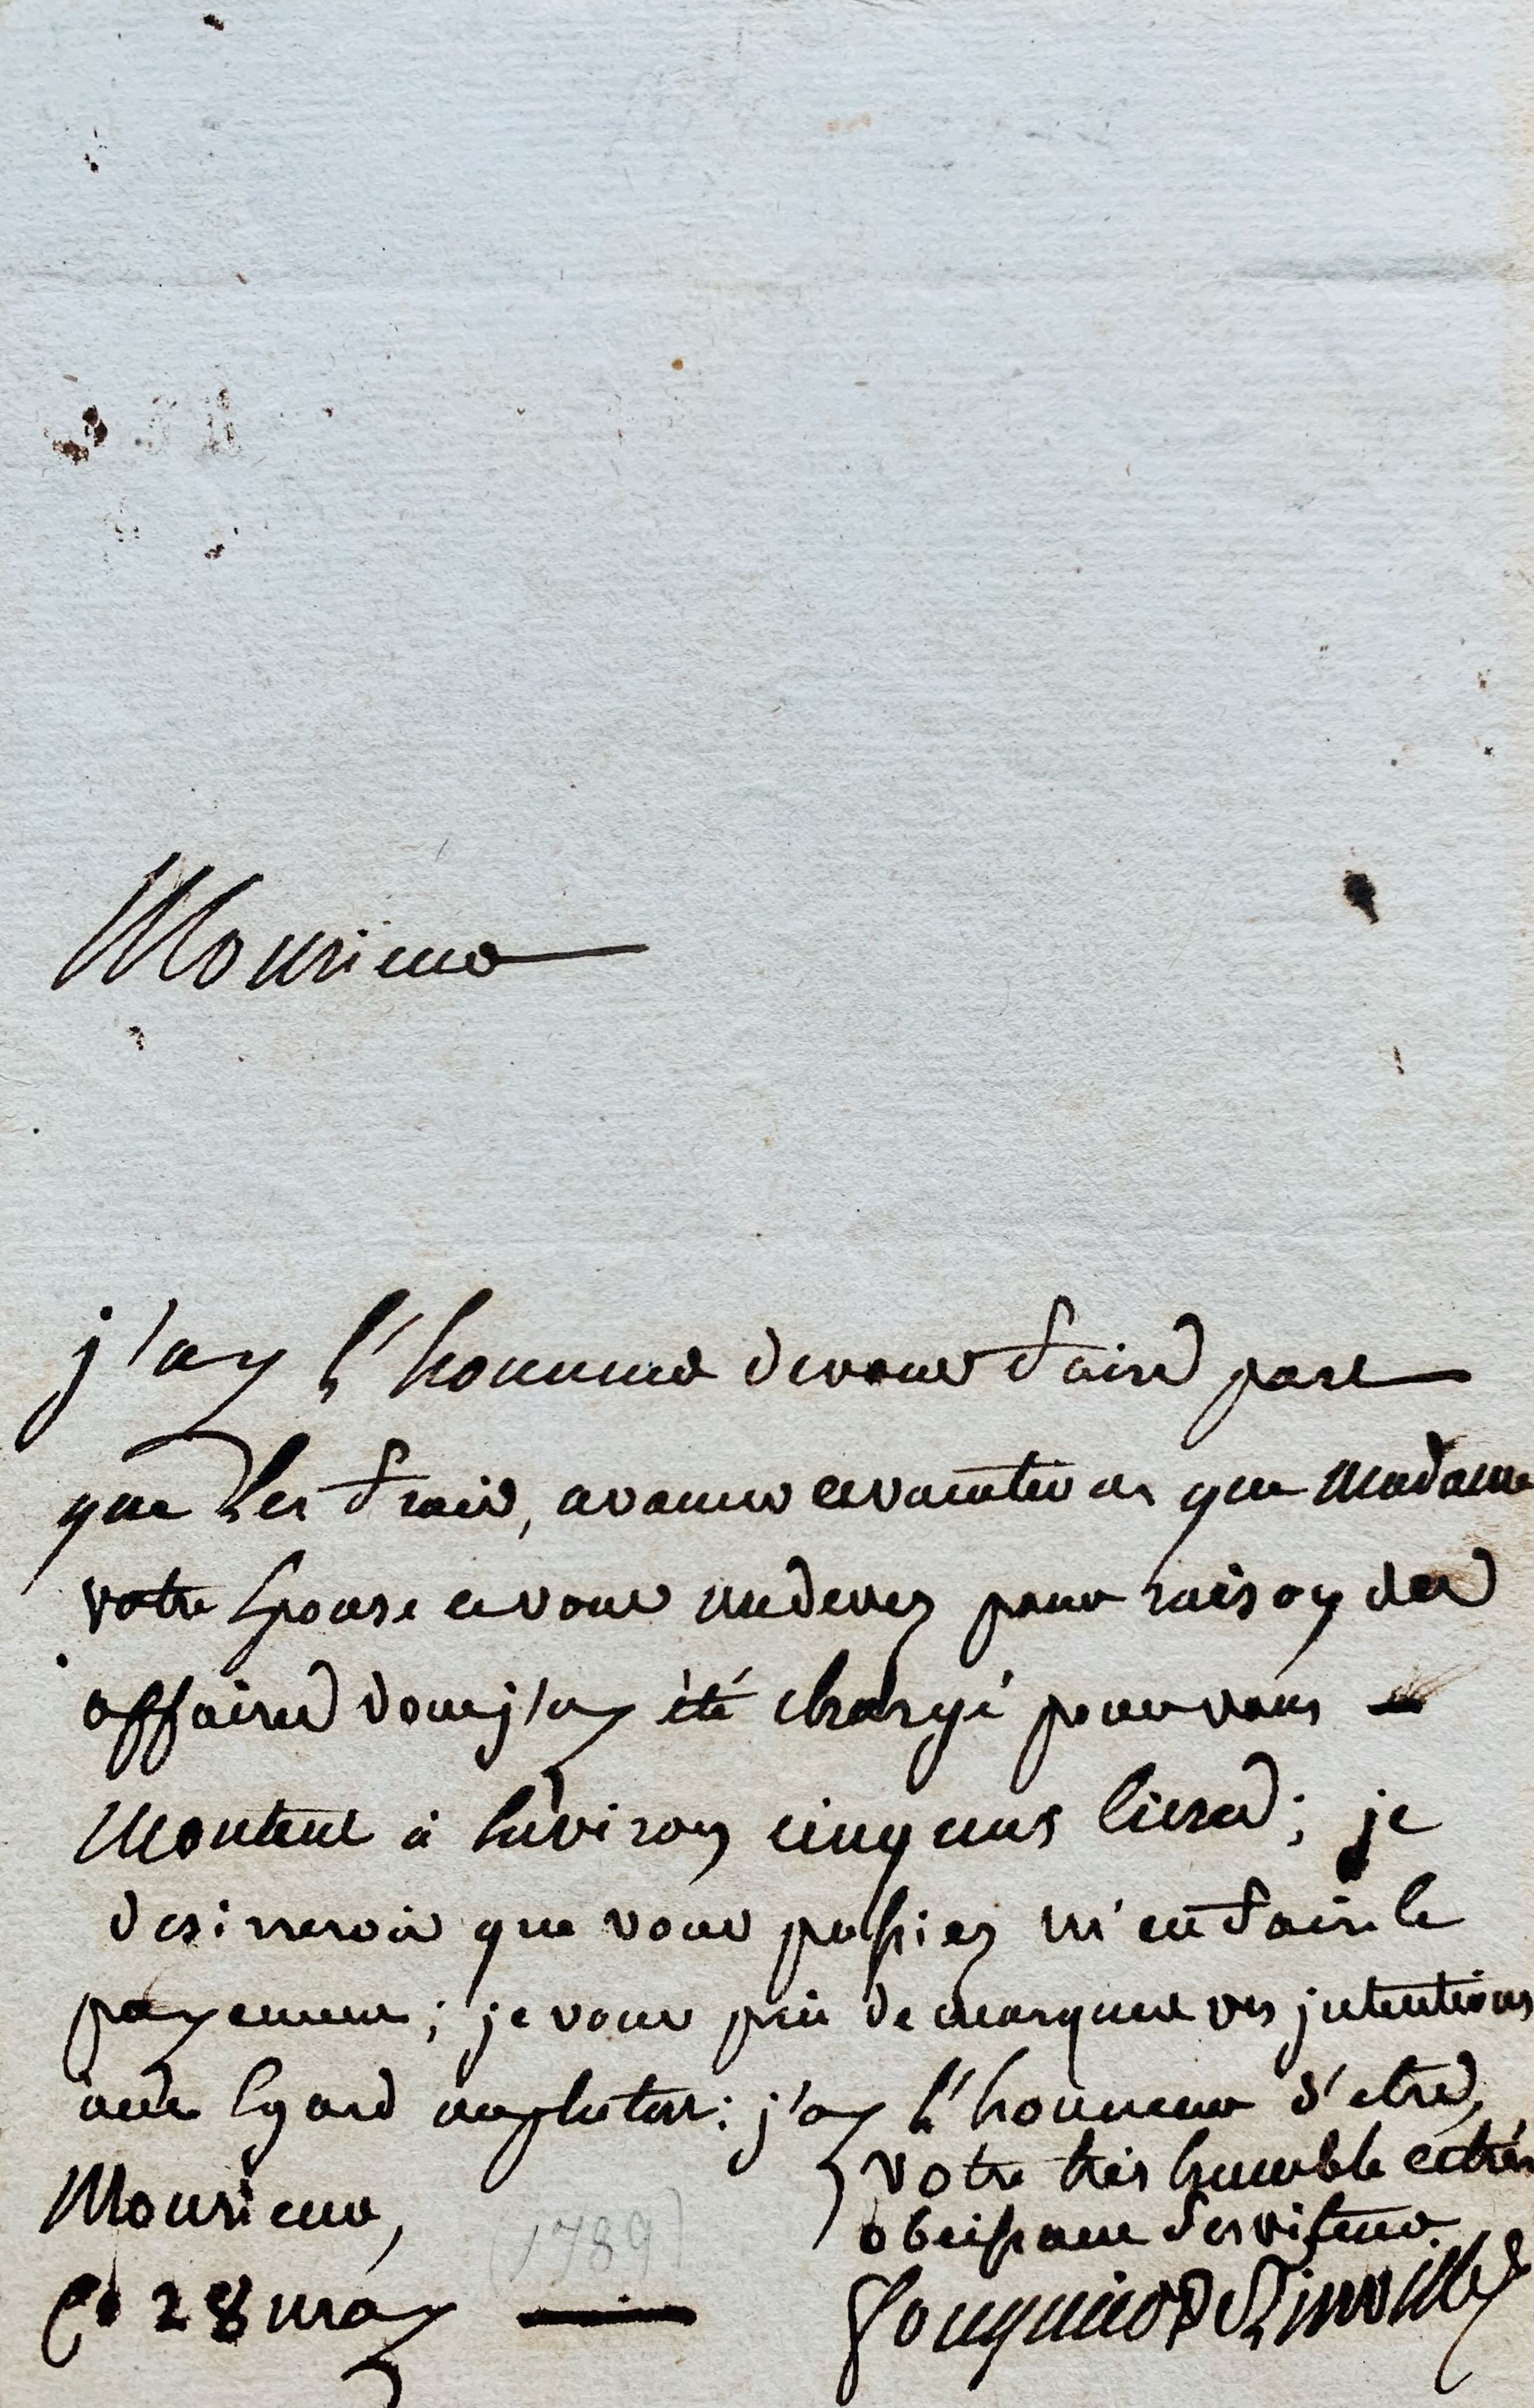 Monsieur
j'ay l'honneur de vous faire part
que Les frais, avances et vacations que Madame
votre Epouse et vous me devez pour raison des
affaires dont j'ay été chargé pour vous
Montent à Environ cinq cens livres; je
desirerois que vous pussiez m'en faire le
payement; je vous prie de marquer vos intentions
à cet Egard au plutot: j'ay L'honneur d'etre,
Monsieur,
votre très humble et très
obeissant serviteur.
ce 28 may
(1789)
Fouquier De Tinville